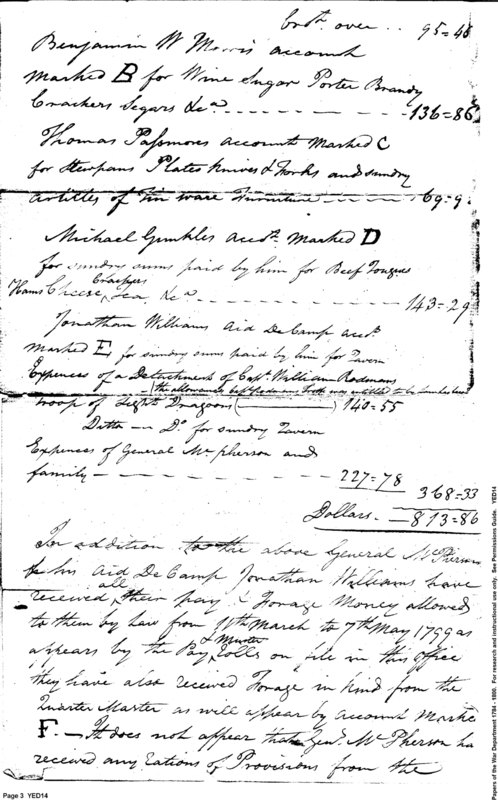 brot. over .. 95=45
Benjamin W Morris account
marked B for Wine Sugar Porter Brandy
Crackers Segars &ca - - - - - 136=86
Thomas Passmores account Marked C
for Stewpans Plates Knives & Forks and sundry
articles of Tin ware Furniture - - - 69=9
Michael Gunkles accot. marked D
for sundry sums paid by him for Beef Tongues
Hams Cheese Crackers Tea &ca - - - - 143=29
Jonathan Williams Aid De Camp accot.
marked E for sundry sums paid by him for Tavern
Expences of a Detachment of Capt. William Rodmans
troop of Light Dragoons 140=55
Ditto - Do. for sundry Tavern
Expences of General Mc pherson and
family - - - - - 227=78
368=33
Dollars - 813=86
In addition to the above General McPherson
& his Aid De Camp Jonathan Williams have
received all their pay & Forage Money allowed
to them by Law from 11th March to 7th May 1799 as
appears by the Pay & Muster Rolls on file in this office
they have also received Forage in kind from the
Quarter Master as will appear by account Marked
F. - It does not appear that Genl. McPherson has
received any Rations of Provisions from the
Page 3 YED14
Papers of the War Department 1784 - 1800. For research and instructional use only. See Permissions Guide. YED14